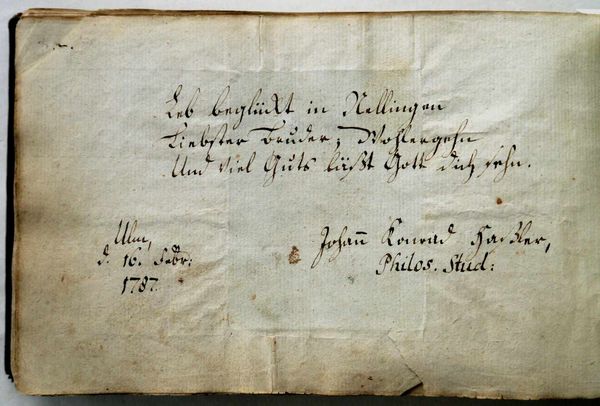 Leb beglückt in Nellingen
Liebster Bruder; Wohlergehn
Und viel Guts läßt Gott dich sehn.
Ulm,
d. 16. Febr:
1787.
Johann Konrad
Philos. Stud: